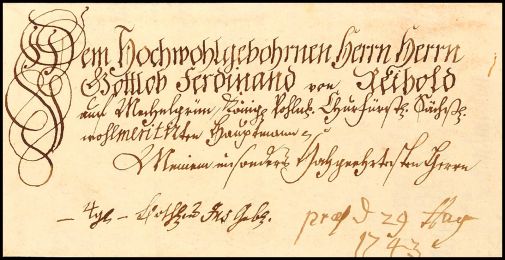 Dem Hochwohlgebohrnen Herrn Herrn
Gottlob Ferdinand von
auf Mechelgrün Königl. Pohln. Churfürstl. Sächß.
wohlmeritirten Hauptmann
Meinem insonders Hochgeehrtesten Herrn
4 gl
præs d 29 May
1743